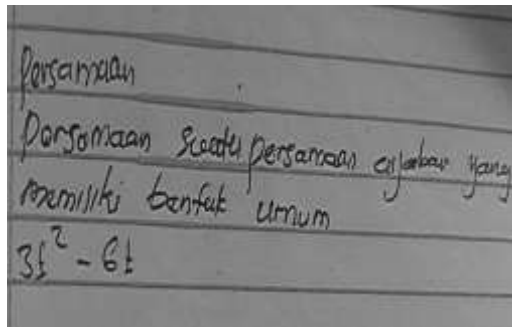 Persamaan
Persamaan suatu persamaan aljabar yang
memiliki bentuk umum
3t² - 6t